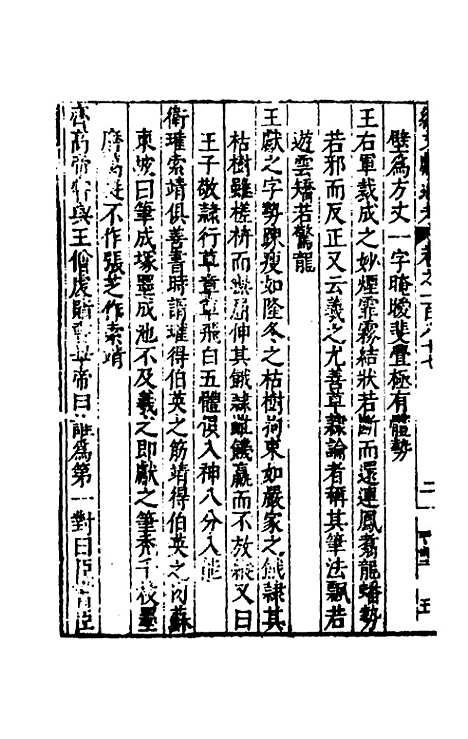 續文獻通考 卷之一百八十七
壁爲方丈一字晻曖斐亹極有體勢
王右軍裁成之妙煙霏霧結狀若斷而還連鳳翥龍蟠勢
若邪而反正又云羲之尤善草隸論者稱其筆法飄若
遊雲矯若驚龍
王獻之字勢疎瘦如隆冬之枯樹拘束如嚴家之餓隸其
枯樹雖槎枿而無屈伸其餓隸雖饑羸而不放縱又曰
王子敬隸行草章草飛白五體俱入神八分入能
衛瓘索靖俱善書時謂瓘得伯英之筋靖得伯英之肉蘇
東坡曰筆成塚墨成池不及羲之即獻之筆禿千枚墨
磨萬挺不作張芝作索靖
齊高帝嘗與王僧虔賭書畢帝曰誰爲第一對曰臣書臣